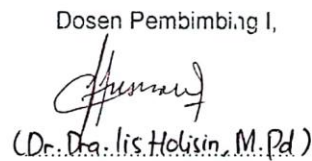 Dosen Pembimbing I,
(Dr. Dra. Iis Holisin, M.Pd)